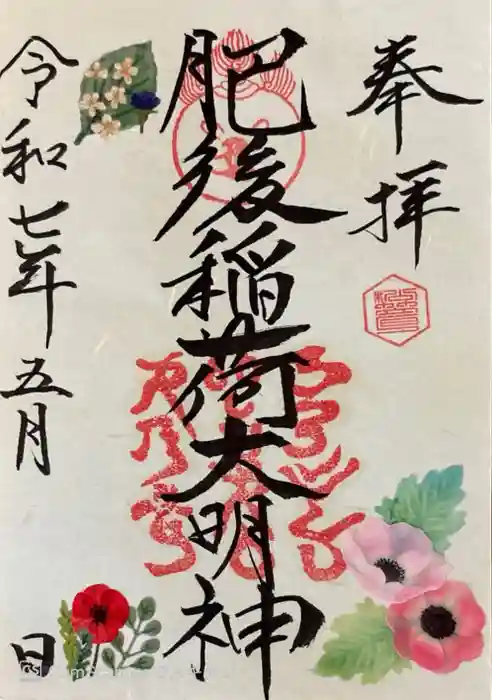 奉拝
肥後稲荷大明神
令和七年五月
日